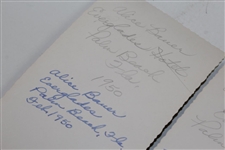 Alice Bauer
Everglades Hotel
Palm Beach
Fla.
1950
Alice Bauer
Everglades
Palm Beach, Fla
Feb. 1950